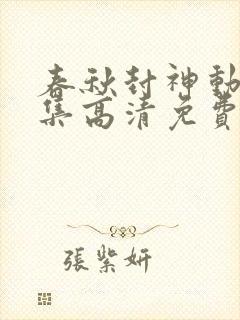 春秋封神動
集高清免費
張紫妍